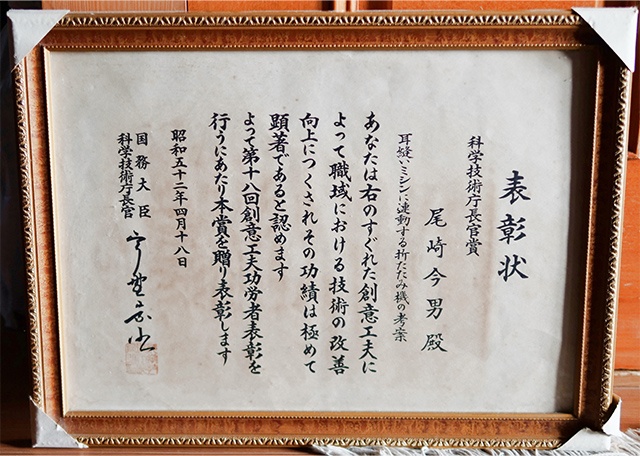 表彰状
科学技術庁長官賞
尾崎今男殿
耳縫いミシンに連動する折たたみ機の考案
あなたは右のすぐれた創意工夫に
よって職域における技術の改善
向上につくされその功績は極めて
顕著であると認めます
よって第十八回創意工夫功労者表彰を
行うにあたり本賞を贈り表彰します
昭和五十二年四月十八日
国務大臣
科学技術庁長官